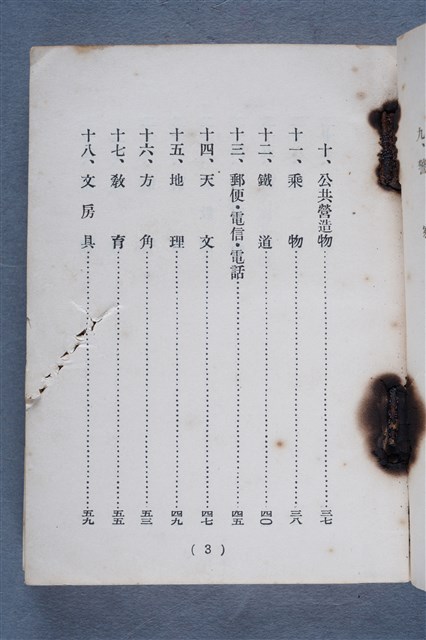 十、公共營造物……三七
十一、乘物……三八
十二、鐵道……四〇
十三、郵便・電信・電話……四五
十四、天文……四七
十五、地理……四九
十六、方角……五三
十七、敎育……五五
十八、文房具……五九
(3)
九、